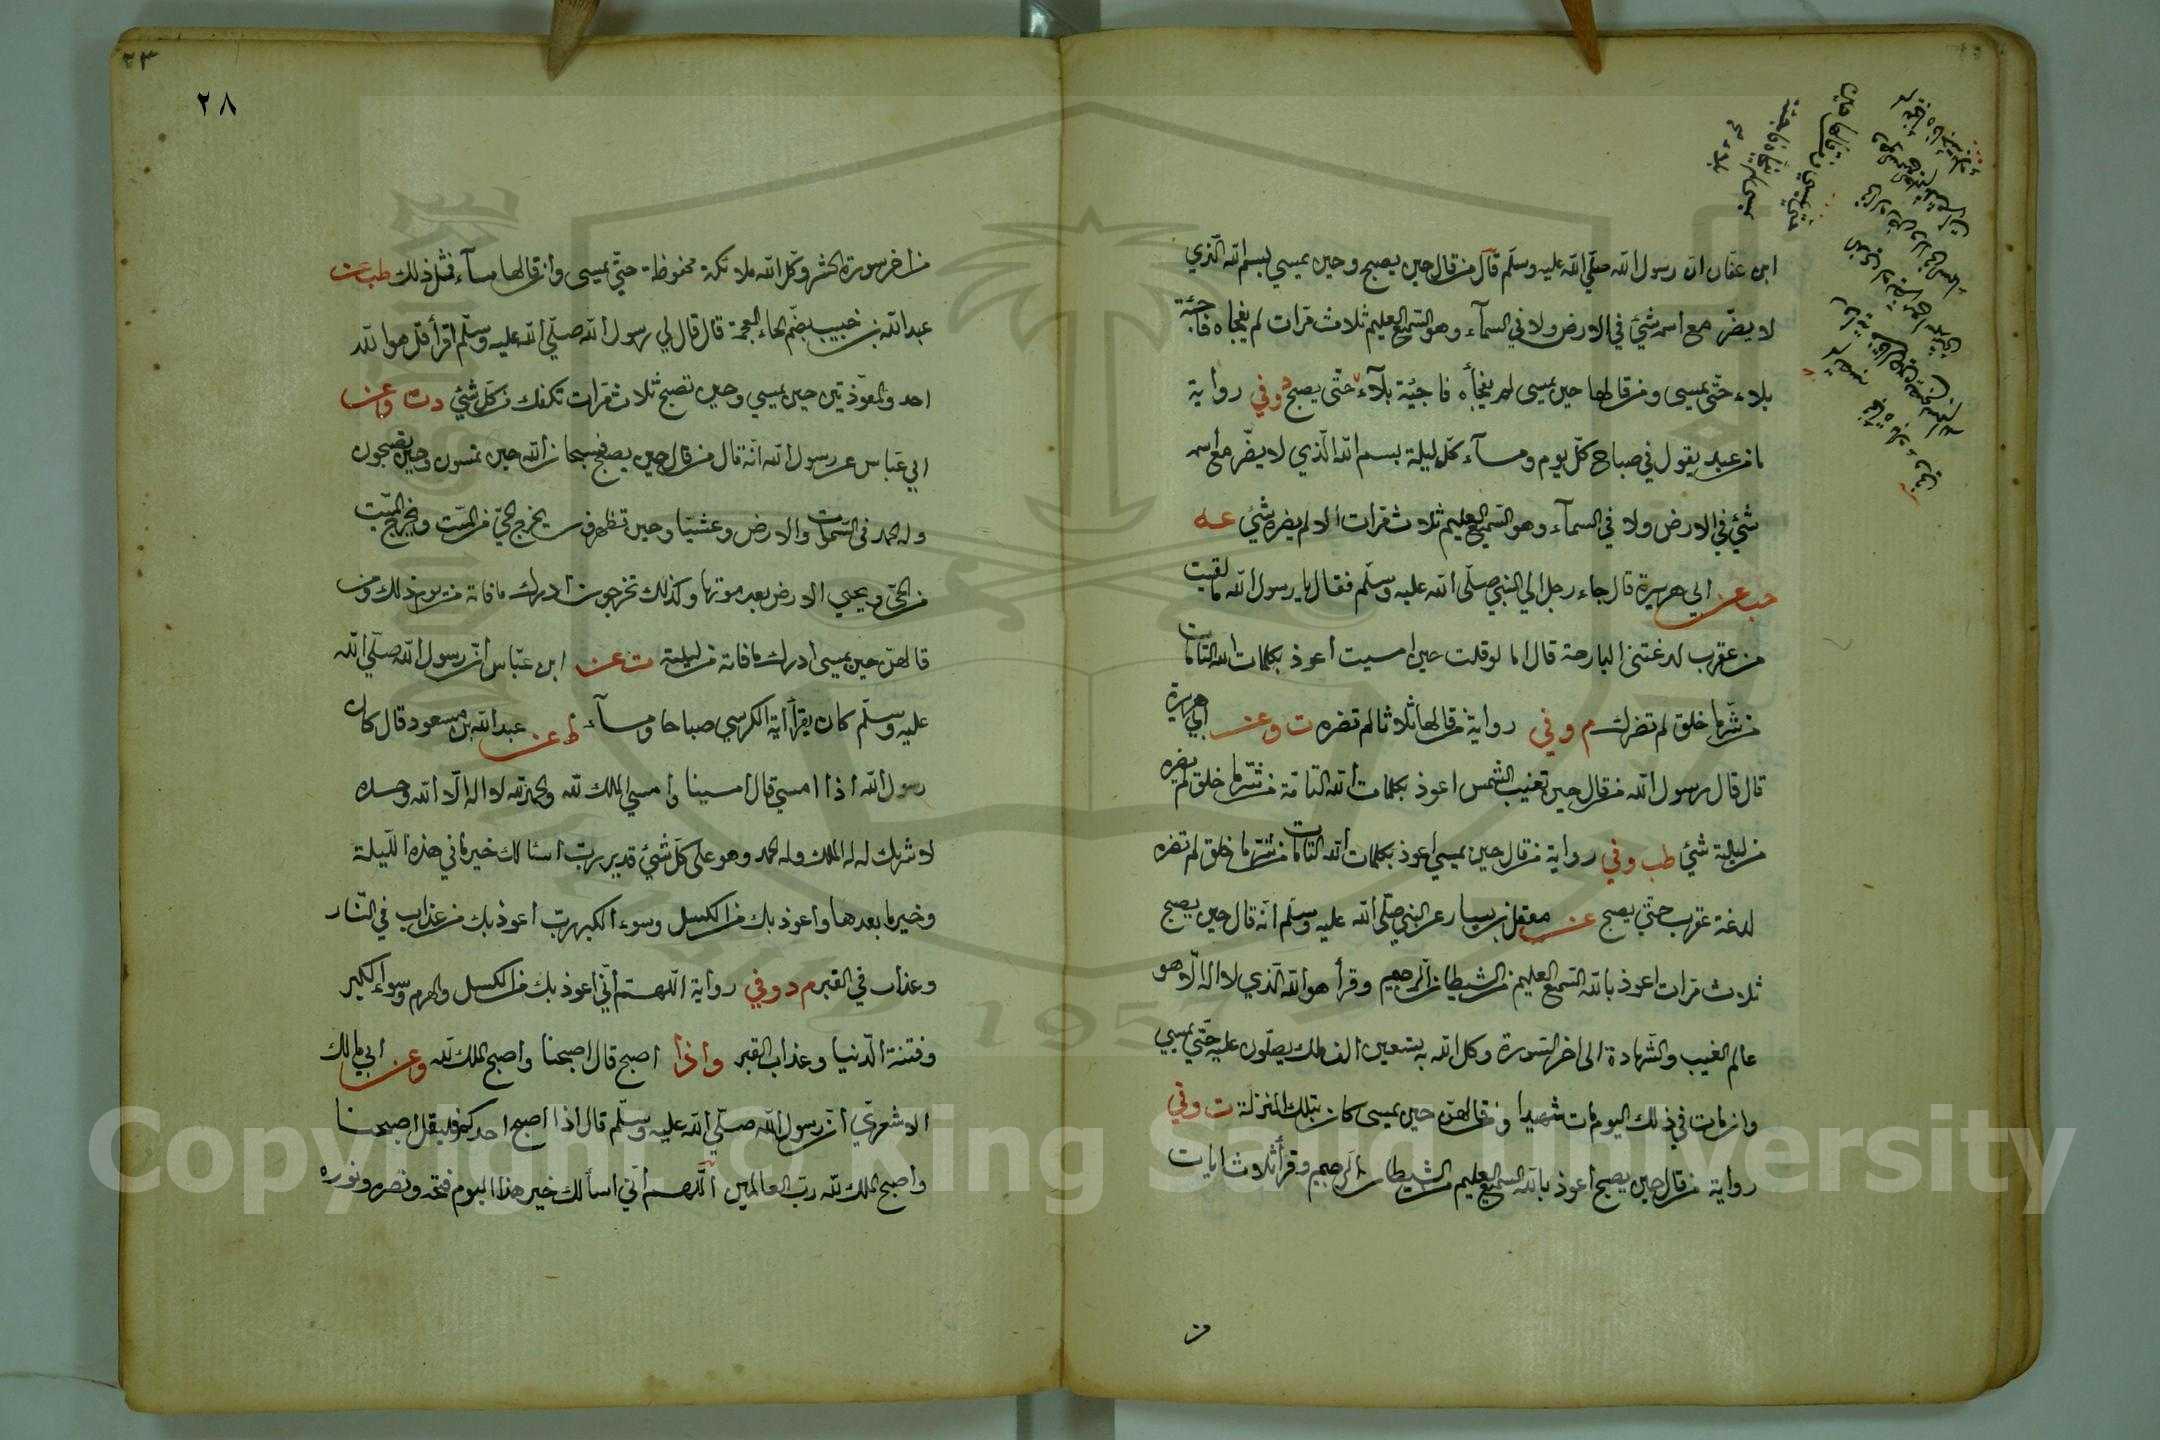 ابن عفان ان رسول الله صلى الله عليه وسلم قال من قال حين يصبح وحين يمسي بسم الله الذي
لا يضر مع اسمه شئ في الارض ولا في السمآء وهو السميع العليم ثلاث مرات لم يفجاه فاجئة
بلاء حتى يمسى ومن قالها حين يمسى لم يفجأه فاجئة بلآء حتى يصبح وفي رواية
ما من عبد يقول في صباح كل يوم ومسآء كل ليلة بسم الله الذي لا يضر مع اسمه
شئ في الارض ولا في السمآء وهو السميع العليم ثلاث مرات الا لم يضره شئ عه
حب عن ابي هريرة قال جاء رجل الي النبي صلى الله عليه وسلم فقال يا رسول الله ما لقيت
من عقرب لدغتنى البارحة قال اما لو قلت حين امسيت أعوذ بكلمات الله التامات
من شر ما خلق لم تضرك م وفي رواية من قالها ثلاثا لم تضره ت وعن ابي هريرة
قال قال رسول الله من قال حين تغيب الشمس اعوذ بكلمات الله التامة من شر ما خلق لم يضره
من ليلته شئ طب وفي رواية من قال حين يمسي اعوذ بكلمات الله التامات من شر ما خلق لم تضره
لدغة عقرب حتى يصبح عن معقل بن يسار عن النبي صلى الله عليه وسلم انه قال حين يصبح
ثلاث مرات اعوذ بالله السميع العليم من الشيطان الرجيم وقرأ هو الله الذي لا اله الا هو
عالم الغيب والشهادة الى اخر السورة وكل الله به سبعين الف ملك يصلون عليه حتى يمسي
وان مات في ذلك اليوم مات شهيدا ومن قالهن حين يمسى كان بتلك المنزلة ت وفي
رواية من قال حين يصبح أعوذ بالله السميع العليم من الشيطان الرجيم وقرأ ثلاث ايات
٢٨
من اخر سورة الحشر وكل الله ملائكة محفوظة حتى يمسى وان قالها مسآء فمثل ذلك طب عن
عبد الله بن خبيب بضم الخاء المعجمة قال قال لي رسول الله صلى الله عليه وسلم اقرأ قل هو الله
احد والمعوذتين حين يمسي وحين تصبح ثلاث مرات تكفك من كل شئ د ت وعن
ابي عباس عن رسول الله انه قال من قال حين يصبح فسبحان الله حين تمسون وحين تصبحون
وله الحمد في السموات والارض وعشيا وحين تظهرون يخرج الحي من الميت ويخرج الميت
من الحي ويحيي الارض بعد موتها وكذلك تخرجون ادرك ما فاته من يومه ذلك ومن
قالهن حين يمسى ادرك ما فاته من ليلته ت عن ابن عباس ان رسول الله صلى الله
عليه وسلم كان يقرأ أية الكرسي صباحا ومسآء ط عن عبد الله بن مسعود قال كان
رسول الله اذا امسي قال أمسينا وأمسي الملك لله والحمد لله لا اله الا الله وحده
لا شريك له له الملك وله الحمد وهو على كل شئ قدير رب أسئالك خير ما في هذه الليلة
وخير ما بعدها وأعوذ بك من الكسل وسوء الكبر رب اعوذ بك من عذاب في النار
وعذاب في القبر م د وفي رواية اللهم اني اعوذ بك من الكسل والهرم وسوء الكبر
وفتنة الدنيا وعذاب القبر واذا اصبح قال اصبحنا واصبح الملك لله وعن ابي مالك
الاشعري ان رسول الله صلى الله عليه وسلم قال اذا أصبح احدكم فليقل اصبحنا
واصبح الملك لله رب العالمين اللهم انى اسألك خير هذا اليوم فتحه ونصره ونوره
Copyright © King Saud University
1957